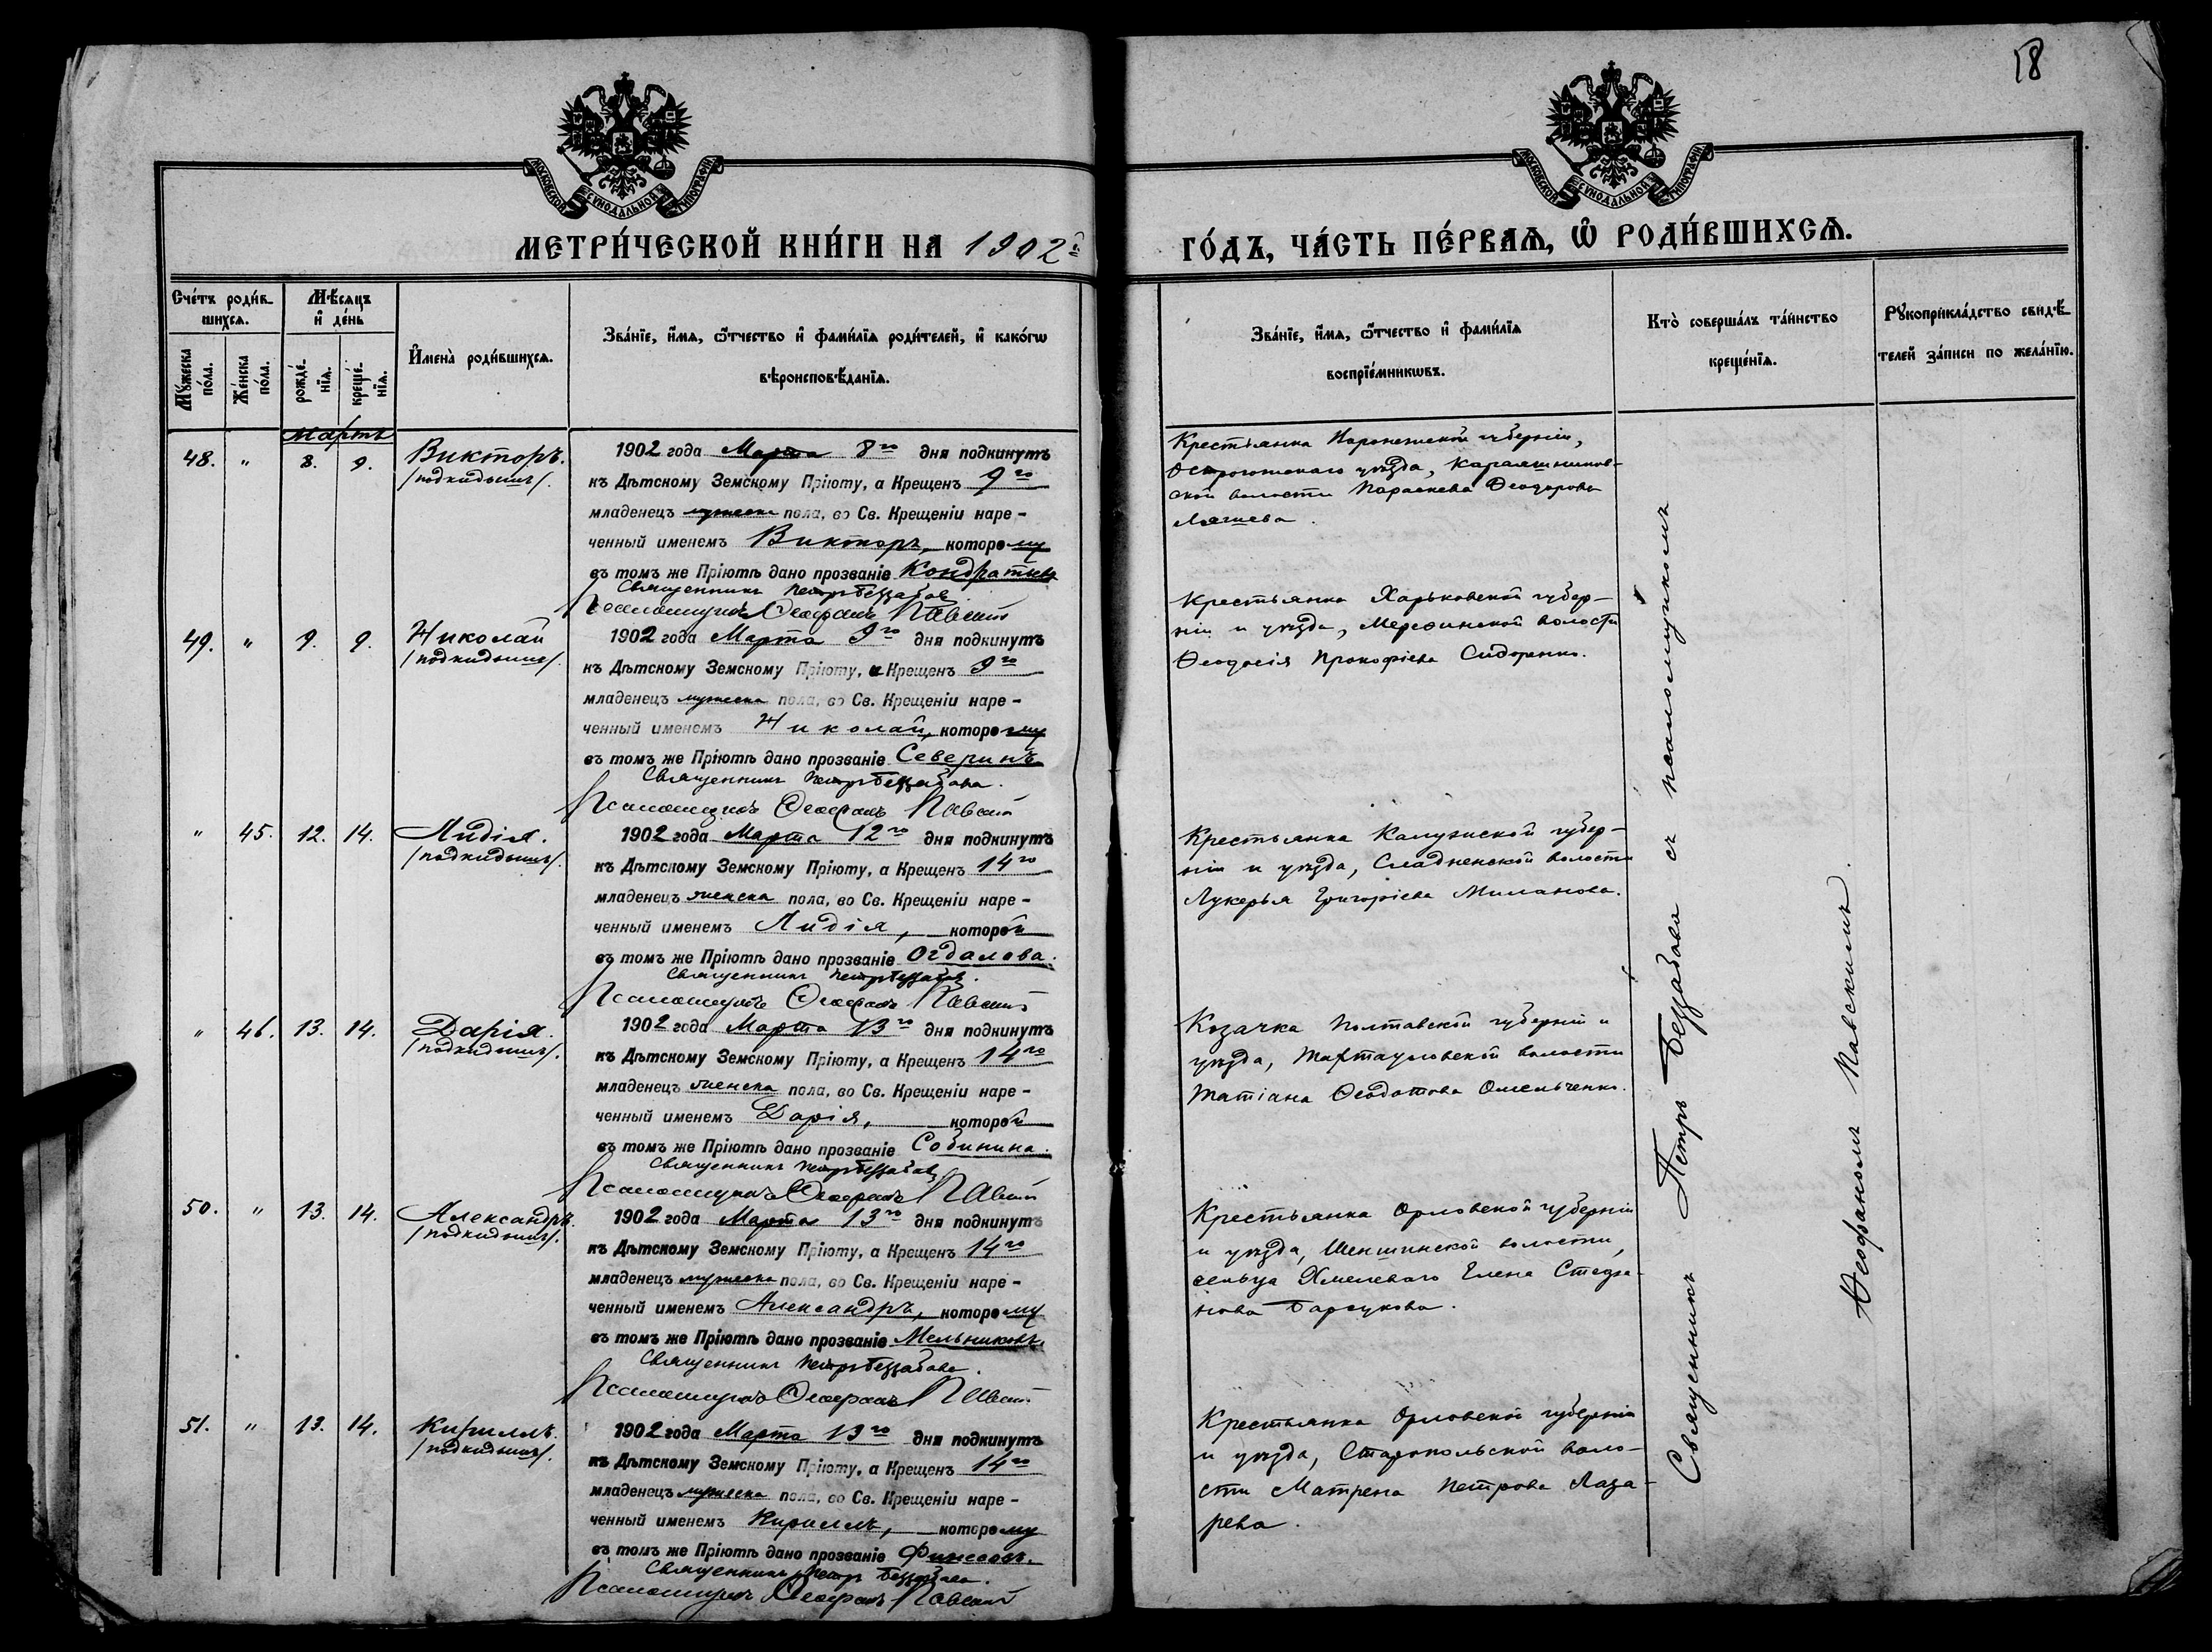 18
МОСКОВСКОЙ СУНОДАЛЬНОЙ ТИПОГРАФІИ
МОСКОВСКОЙ СУНОДАЛЬНОЙ ТИПОГРАФІИ
МЕТРИ́ЧЕСКОЙ КНИ́ГИ НА 1902й
ГО́ДЪ, ЧА́СТЬ ПЕ́РВАѦ, Ѡ҆ РОДИ́ВШИХСѦ.
Сче́тъ роди́в-
шихсѧ.
Мꙋ́жеска по́ла.
Же́нска по́ла.
Мѣ́сѧцъ
и҆ де́нь
рожде́-
нїѧ.
креще́-
нїѧ.
И҆мена̀ роди́вшихсѧ.
Зва́нїе, и҆́мѧ, ѻ҆́тчество и҆ фами́лїѧ роди́телей, и҆ како́гѡ
вѣроисповѣ́данїѧ.
Зва́нїе, и҆́мѧ, ѻ҆́тчество и҆ фами́лїѧ
воспрїе́мникѡвъ.
Кто̀ соверша́лъ та́инство
креще́нїѧ.
Рꙋкоприкла́дство свидѣ́-
телей за́писи по жела́нїю.
Мартъ
48. " 8. 9. Викторъ.
/подкидышъ/.
1902 года Марта 8го дня подкинутъ
къ Дѣтскому Земскому Пріюту, а Крещенъ 9го
младенецъ мужеска пола, во Св. Крещеніи наре-
ченный именемъ Викторъ, которому
въ томъ же Пріютѣ дано прозваніе Кондратьевъ
Священникъ Петръ Беззабовъ
Псаломщикъ Ѳеофанъ Павскій
Крестьянка Воронежской губерніи,
Острогожскаго уѣзда, Караяшников-
ской волости Параскева Ѳеодорова
49. " 9. 9. Николай
/подкидышъ/.
1902 года Марта 9го дня подкинутъ
къ Дѣтскому Земскому Пріюту, а Крещенъ 9го
младенецъ мужеска пола, во Св. Крещеніи наре-
ченный именемъ Николай, которому
въ томъ же Пріютѣ дано прозваніе Северинъ
Священникъ Петръ Беззабовъ.
Псаломщикъ Ѳеофанъ Павскій
Крестьянка Харьковской губер-
ніи и уѣзда, Мереѳинской волости
Ѳеодосія Прокофіева Сидоренко.
" 45. 12. 14. Лидія.
/подкидышъ/.
1902 года Марта 12го дня подкинутъ
къ Дѣтскому Земскому Пріюту, а Крещенъ 14го
младенецъ женска пола, во Св. Крещеніи наре-
ченный именемъ Лидія, которой
въ томъ же Пріютѣ дано прозваніе Огдалова.
Священникъ Петръ Беззабовъ.
Псаломщикъ Ѳеофанъ Павскій
Крестьянка Калужской губер-
ніи и уѣзда, Сладненской волости
Лукерья Григоріева Миланова.
" 46. 13. 14. Дарія.
/подкидышъ/.
1902 года Марта 13го дня подкинутъ
къ Дѣтскому Земскому Пріюту, а Крещенъ 14го
младенецъ женска пола, во Св. Крещеніи наре-
ченный именемъ Дарія, которой
въ томъ же Пріютѣ дано прозваніе Собинина.
Священникъ Петръ Беззабовъ
Псаломщикъ Ѳеофанъ Павскій
Козачка Полтавской губерніи и
уѣзда, Тахтауловской волости
Татіана Ѳеодотова Омельченко.
50. " 13. 14. Александръ.
/подкидышъ/.
1902 года Марта 13го дня подкинутъ
къ Дѣтскому Земскому Пріюту, а Крещенъ 14го
младенецъ мужеска пола, во Св. Крещеніи наре-
ченный именемъ Александръ, которому
въ томъ же Пріютѣ дано прозваніе Мельниковъ.
Священникъ Петръ Беззабовъ.
Псаломщикъ Ѳеофанъ Павскій
Крестьянка Орловской губерніи
и уѣзда, Шеншинской волости,
сельца Хмелеваго Елена Стефа-
нова Барсукова.
51. " 13. 14. Кириллъ.
/подкидышъ/.
1902 года Марта 13го дня подкинутъ
къ Дѣтскому Земскому Пріюту, а Крещенъ 14го
младенецъ мужеска пола, во Св. Крещеніи наре-
ченный именемъ Кириллъ, которому
въ томъ же Пріютѣ дано прозваніе
Священникъ Петръ Беззабовъ.
Псаломщикъ Ѳеофанъ Павскій
Крестьянка Орловской губерніи
и уѣзда, Старопольской воло-
сти Матрена Петрова Лаза-
рева.
Священникъ Петръ Беззабовъ съ псаломщикомъ
Ѳеофаномъ Павскимъ.